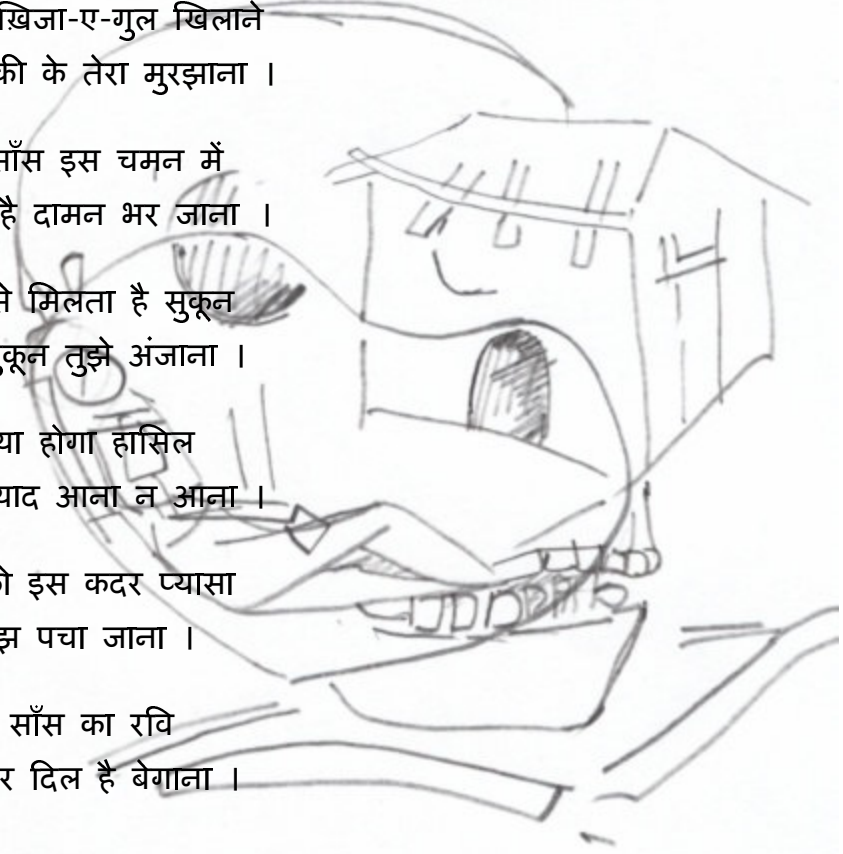 ख़िजा-ए-गुल खिलाने
की के तेरा मुरझाना ।
साँस इस चमन में
है दामन भर जाना ।
से मिलता है सुकून
तुझे अंजाना ।
होगा हासिल
याद आना न आना ।
इस कदर प्यासा
पचा जाना ।
साँस का रवि
दिल है बेगाना ।